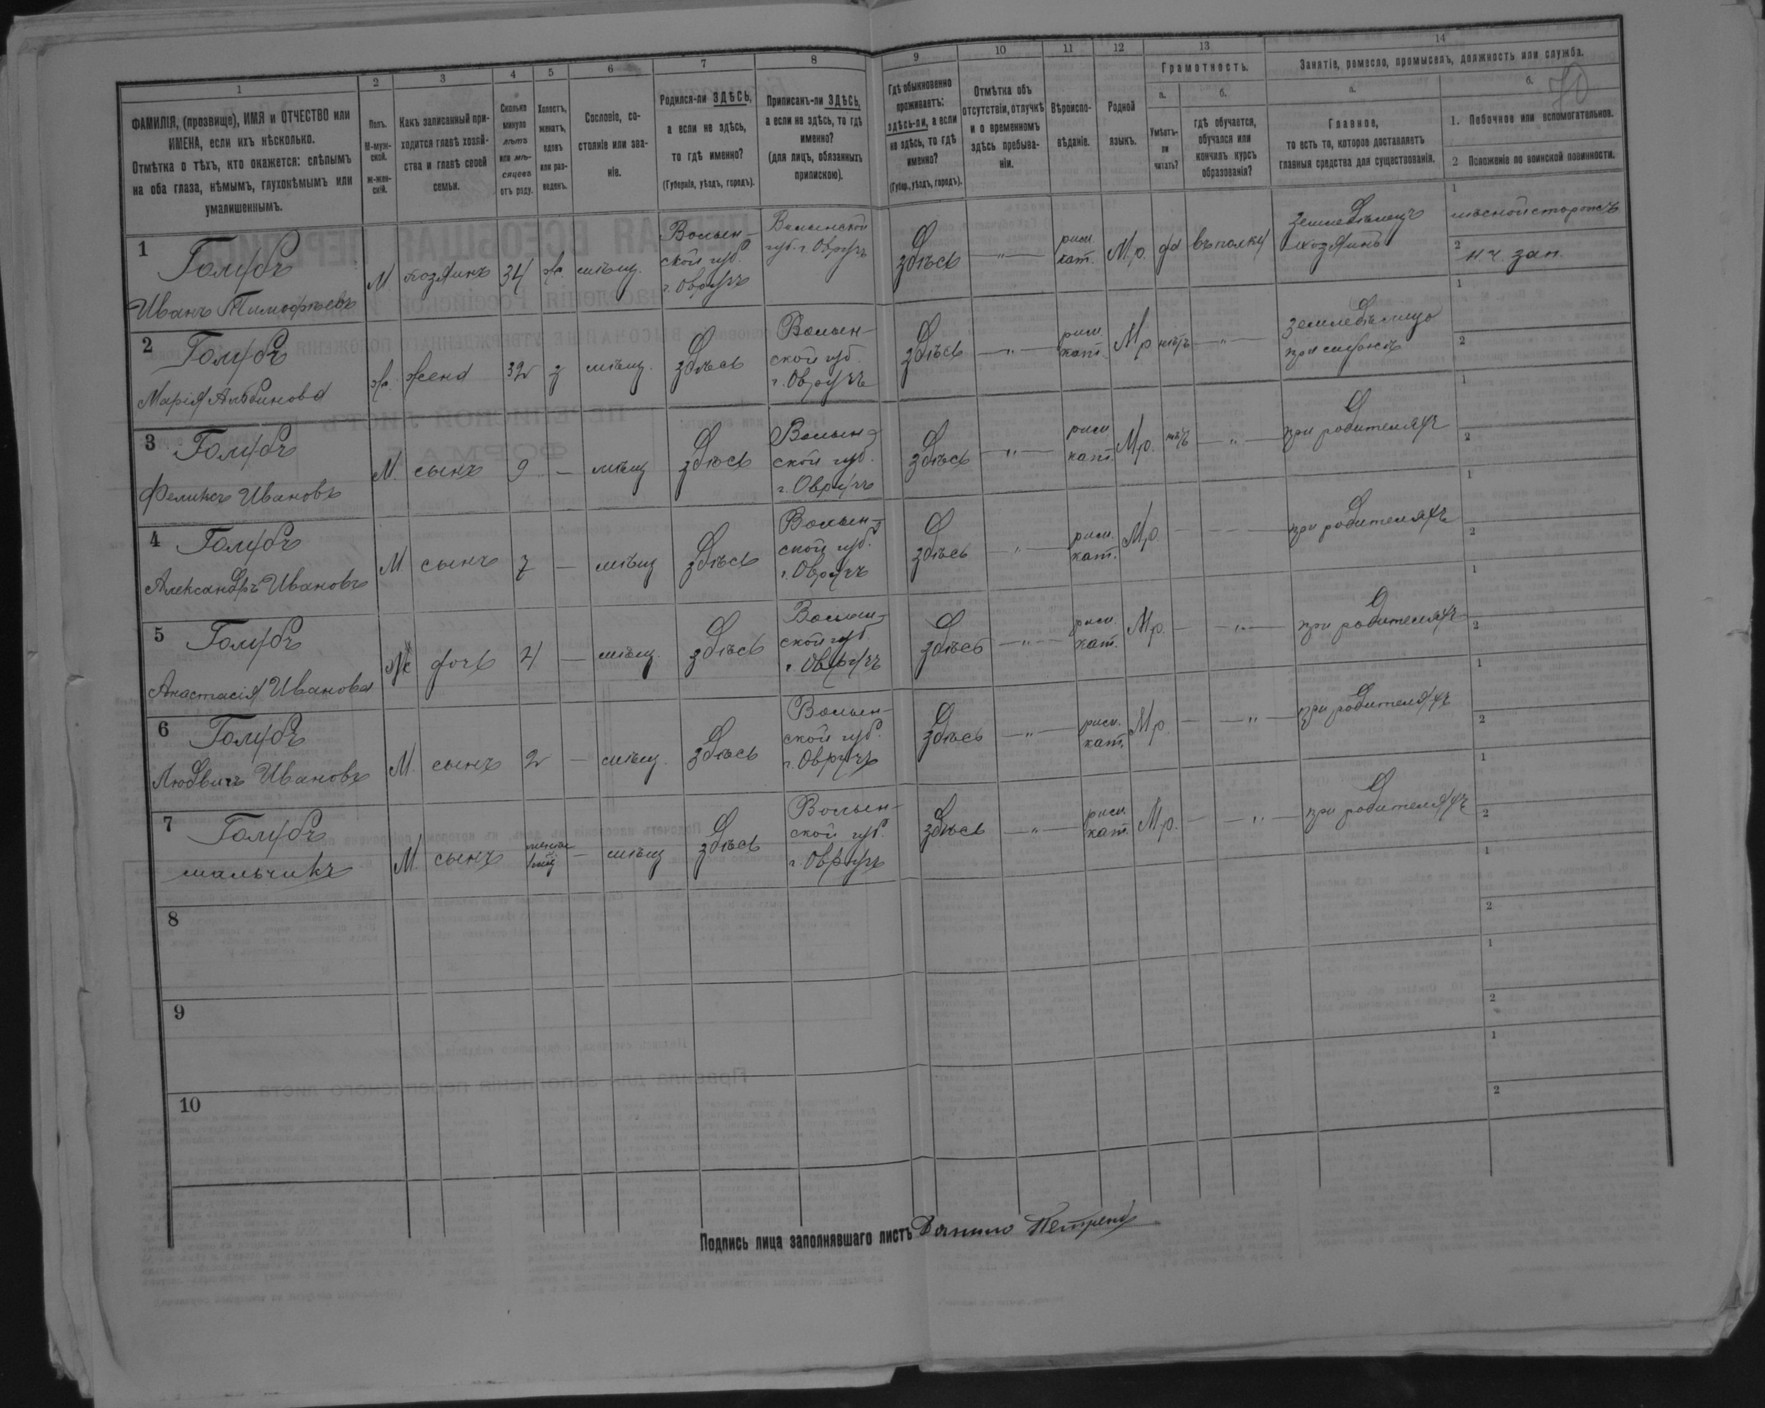 1
ФАМИЛІЯ, (прозвище), ИМЯ и ОТЧЕСТВО или
ИМЕНА, если ихъ нѣсколько.
Отмѣтка о тѣхъ, кто окажется: слѣпымъ
на оба глаза, нѣмымъ, глухонѣмымъ или
умалишеннымъ.
2
Полъ.
М-муж-
ской.
ж-жен-
скій.
3
Какъ записанный при-
ходится главѣ хозяй-
ства и главѣ своей
семьи.
4
Сколько
минуло
лѣтъ
или мѣ-
сяцевъ
отъ роду.
5
Холостъ,
женатъ,
вдовъ
или раз-
веденъ.
6
Сословіе, со-
стояніе или зва-
ніе.
7
Родился-ли ЗДѢСЬ,
а если не здѣсь,
то гдѣ именно?
(Губернія, уѣздъ, городъ).
8
Приписанъ-ли ЗДѢСЬ,
а если не здѣсь, то гдѣ
именно?
(для лицъ, обязанныхъ
припискою).
9
Гдѣ обыкновенно
проживаетъ:
здѣсь-ли, а если
не здѣсь, то гдѣ
именно?
(Губер., уѣздъ, городъ).
10
Отмѣтка объ
отсутствіи, отлучкѣ
и о временномъ
здѣсь пребыва-
ніи.
11
Вѣроиспо-
вѣданіе.
12
Родной
языкъ.
13
Грамотность.
а.
Умѣетъ-
ли
читать?
б.
гдѣ обучается,
обучался или
кончилъ курсъ
образованія?
14
Занятіе, ремесло, промыселъ, должность или служба.
а.
Главное,
то есть то, которое доставляетъ
главныя средства для существованія.
б.
1. Побочное или вспомогательное.
2 Положеніе по воинской повинности.
70
1
Голубъ
Иванъ Тимофѣевъ
М
хозяинъ
34
ж.
мѣщ.
Волын-
ской губ.
г. Овручъ
Волынской
губ. г. Овручъ
здѣсь
— „ —
рим.
кат.
М.р.
да
въ полку
земледѣлецъ
хозяинъ
1
лѣсной сторожъ
2
н ч. зап.
2
Голубъ
Марія Альбинова
ж.
жена
32
з
мѣщ.
здѣсь
Волын-
ской губ.
г. Овручъ
здѣсь
— „ —
рим.
кат.
М.р.
нѣтъ
— „ —
1
2
3
Голубъ
Феликсъ Ивановъ
М.
сынъ
9
—
мѣщ
здѣсь
Волын-
ской губ.
г. Овручъ
здѣсь
— „ —
рим.
кат.
М.р.
нѣтъ
— „ —
при родителяхъ
1
2
4
Голубъ
Александръ Ивановъ
М
сынъ
7
—
мѣщ
здѣсь
Волын-
ской губ.
г. Овручъ
здѣсь
— „ —
рим.
кат.
М.р.
—
—
при родителяхъ
1
2
5
Голубъ
Анастасія Иванова
ж
дочь
4
—
мѣщ.
здѣсь
Волын-
ской губ
г. Овручъ
здѣсь
— „ —
рим.
кат.
М.р.
—
— „ —
при родителяхъ
1
2
6
Голубъ
Людвигъ Ивановъ
М.
сынъ
2
—
мѣщ.
здѣсь
Волын-
ской губ.
г. Овручъ
здѣсь
— „ —
рим.
кат.
М.р.
—
— „ —
при родителяхъ
1
2
7
Голубъ
мальчикъ
М.
сынъ
—
мѣщ
здѣсь
Волын-
ской губ.
г. Овручъ
здѣсь
— „ —
рим.
кат.
М.р.
—
— „ —
при родителяхъ
1
2
8
1
2
9
1
2
10
1
2
Подпись лица заполнявшаго листъ Данило